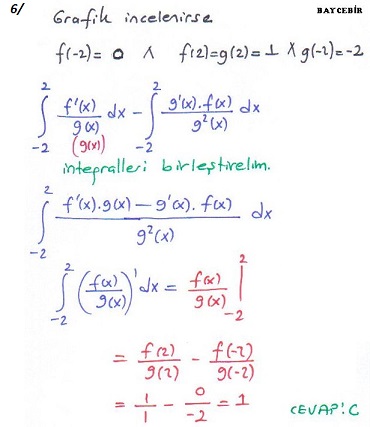 6/ BAYCEBİR
Grafik incelenirse
f(-2) = 0 ∧ f(2)=g(2)=1 ∧ g(-2)=-2
∫_{-2}^{2} f'(x)/g(x) dx - ∫_{-2}^{2} g'(x).f(x)/g²(x) dx
(g(x))
integralleri birleştirelim.
∫_{-2}^{2} (f'(x).g(x) - g'(x).f(x))/g²(x) dx
∫_{-2}^{2} (f(x)/g(x))' dx = f(x)/g(x) |_{-2}^{2}
= f(2)/g(2) - f(-2)/g(-2)
= 1/1 - 0/-2 = 1
CEVAP: C